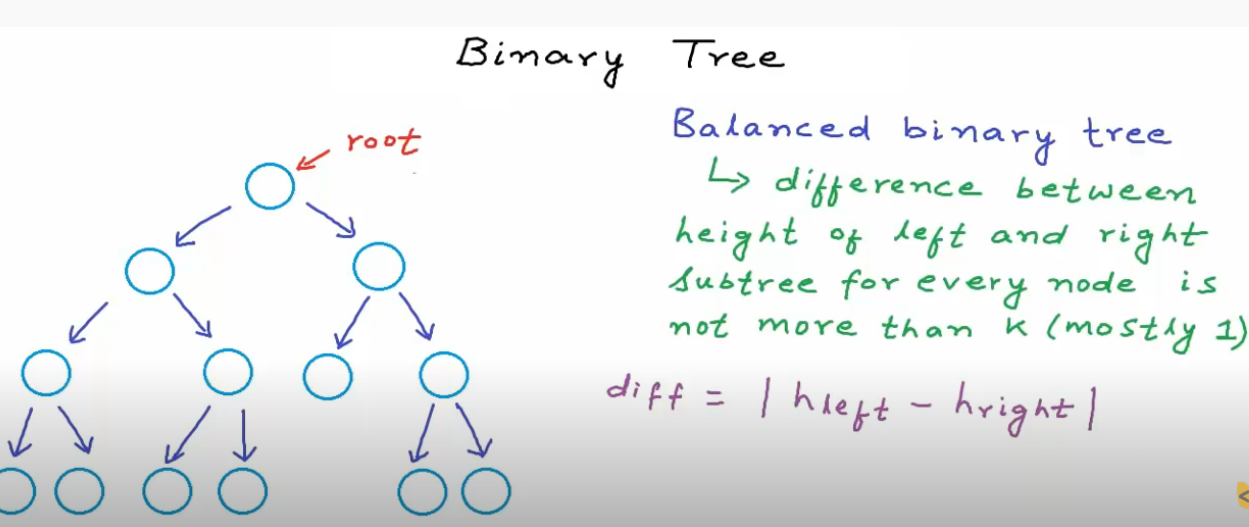 Binary Tree
root
Balanced binary tree
↳ difference between
height of left and right
subtree for every node is
not more than k (mostly 1)
diff = | hleft - hright |